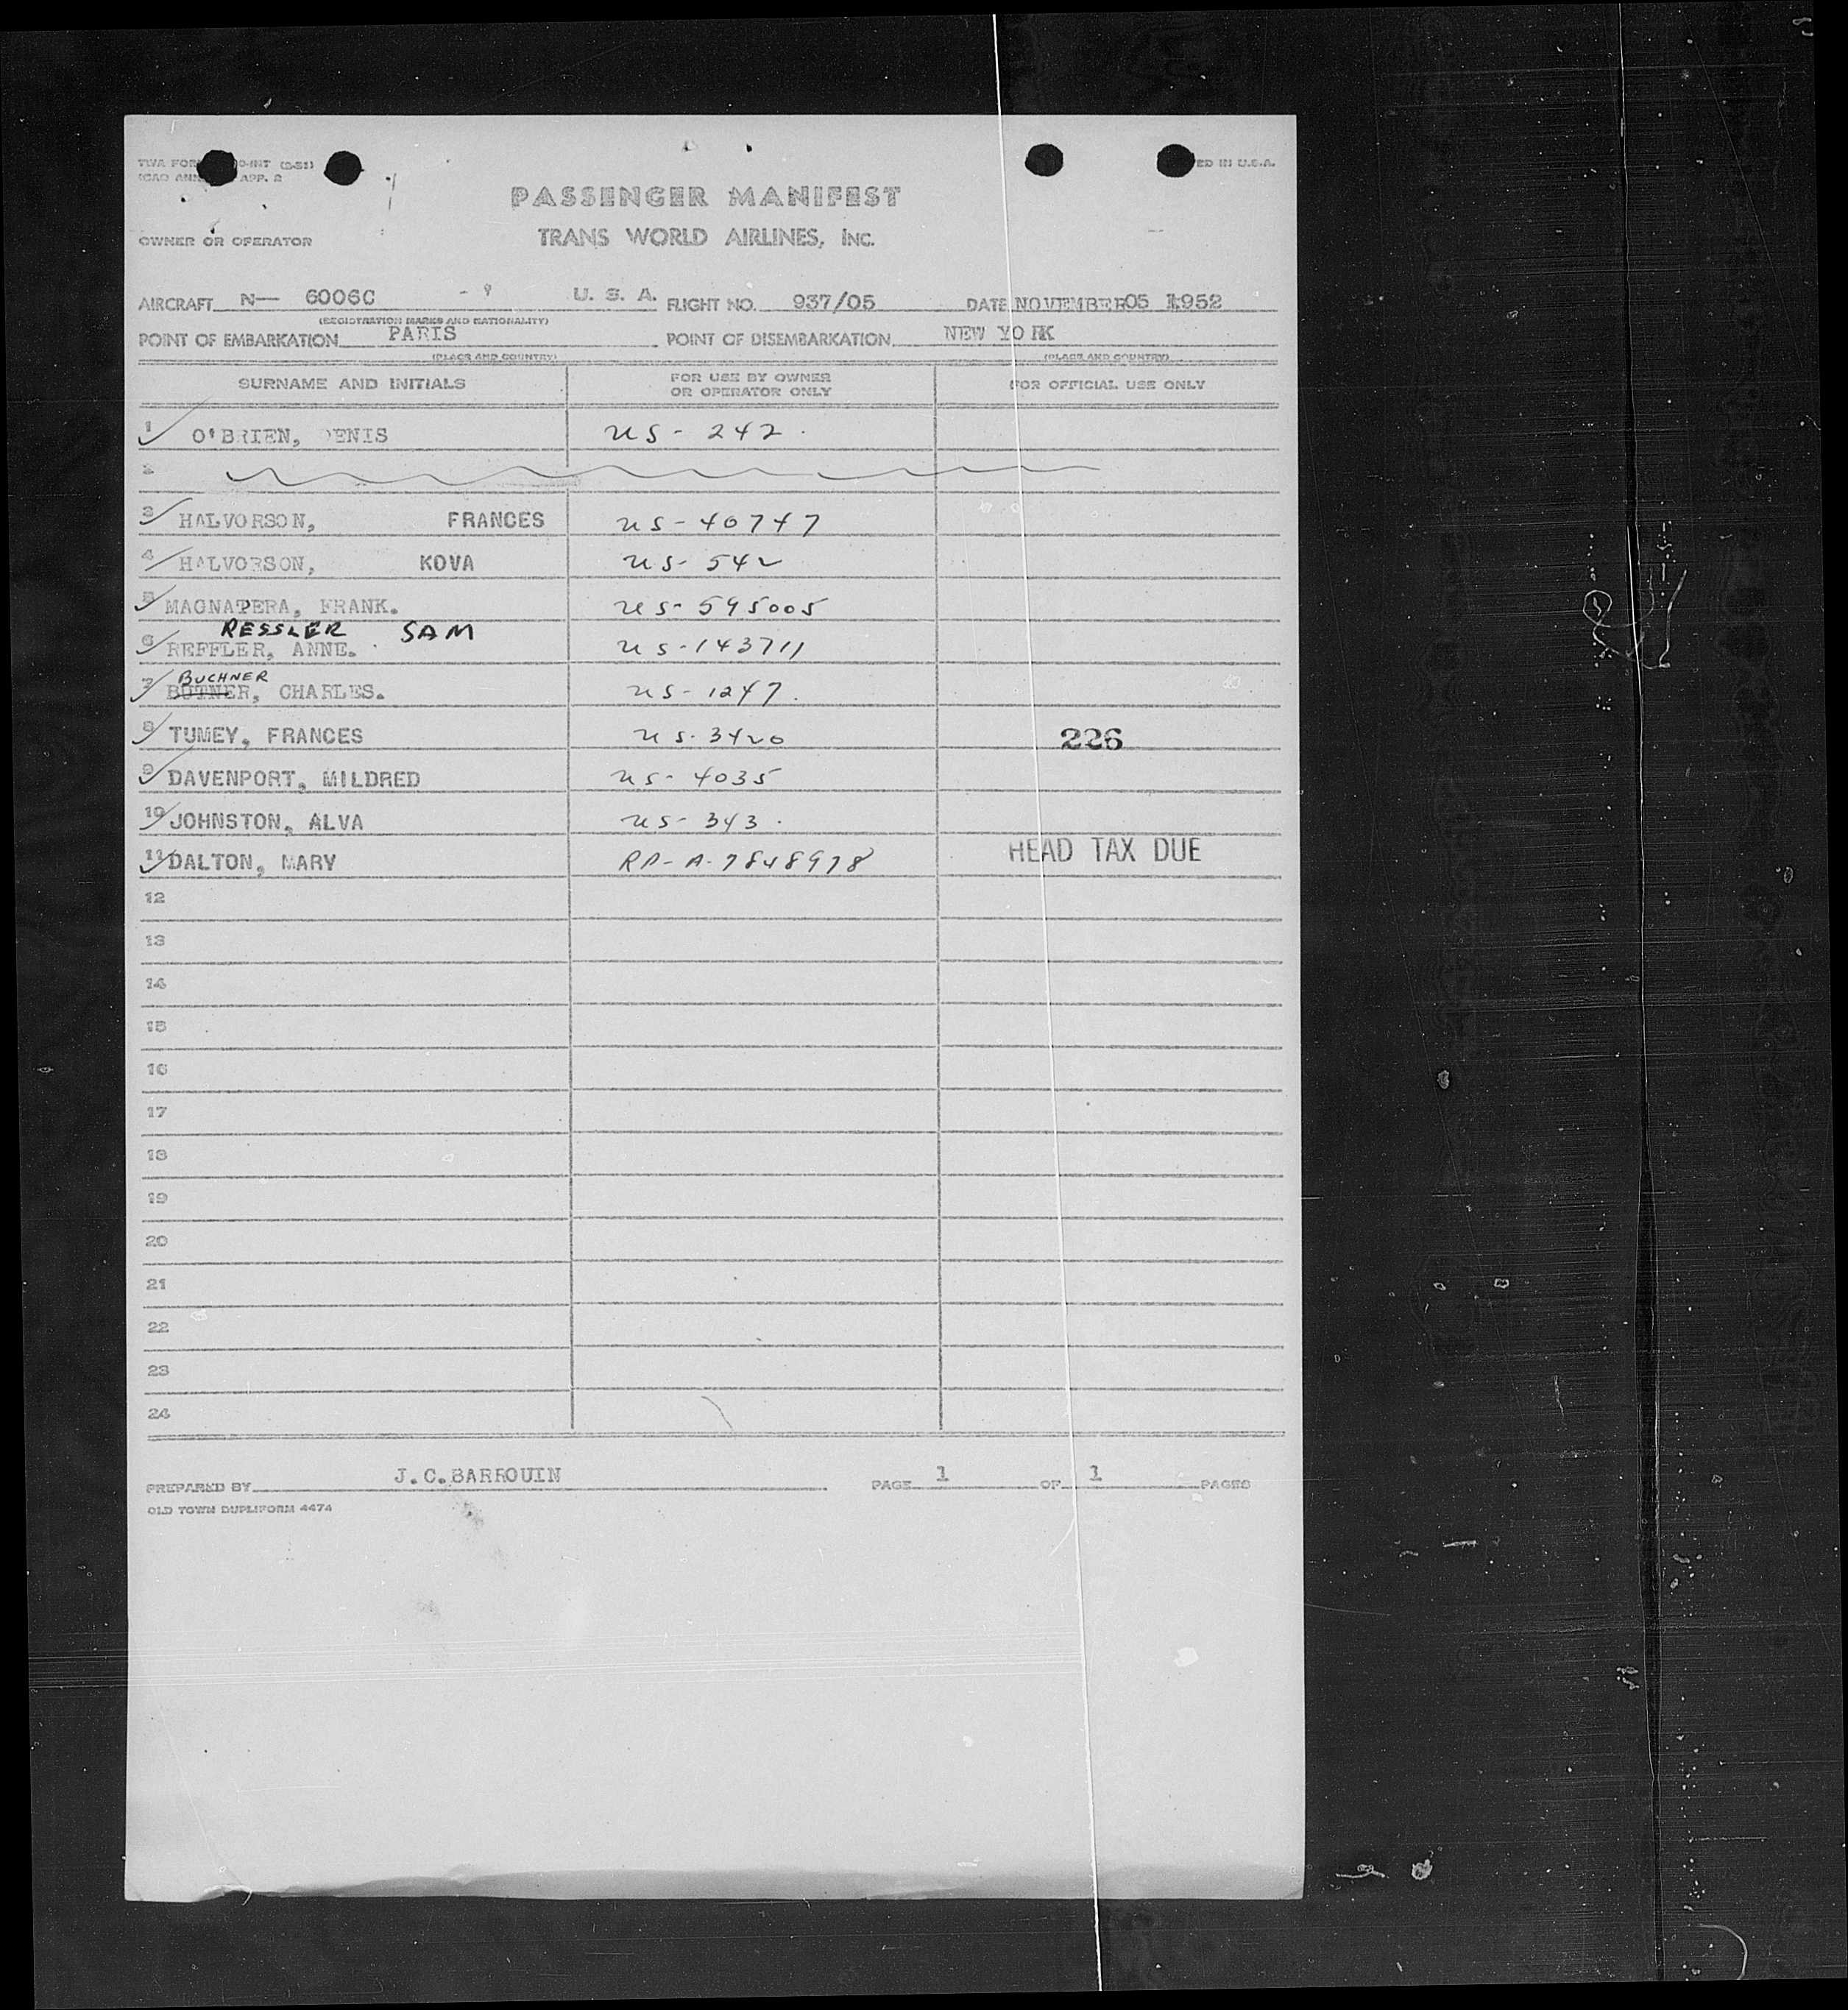 TWA FOR 0-INT (2-51) ED IN U.S.A.
ICAO ANN APP. 2
PASSENGER MANIFEST
OWNER OR OPERATOR TRANS WORLD AIRLINES, INC.
AIRCRAFT N— 6006C U. S. A. FLIGHT NO. 937/05 DATE NOVEMBER 05 1952
(REGISTRATION MARKS AND NATIONALITY)
POINT OF EMBARKATION PARIS POINT OF DISEMBARKATION NEW YORK
(PLACE AND COUNTRY) (PLACE AND COUNTRY)
SURNAME AND INITIALS FOR USE BY OWNER OR OPERATOR ONLY FOR OFFICIAL USE ONLY
1 O'BRIEN, DENIS US- 242.
2
3 HALVORSON, FRANCES US-40747
4 HALVORSON, KOVA US-542
5 MAGNATERA, FRANK. US-595005
RESSLER SAM
6 REFFLER, ANNE. US-143711
BUCHNER
7 BUTNER, CHARLES. US-1247.
8 TUMEY, FRANCES US-3420 226
9 DAVENPORT, MILDRED US-4035
10 JOHNSTON, ALVA US-343.
11 DALTON, MARY RP-A-7848978 HEAD TAX DUE
12
13
14
15
16
17
18
19
20
21
22
23
24
PREPARED BY J.C.BARROUIN PAGE 1 OF 1 PAGES
OLD TOWN DUPLIFORM 4474